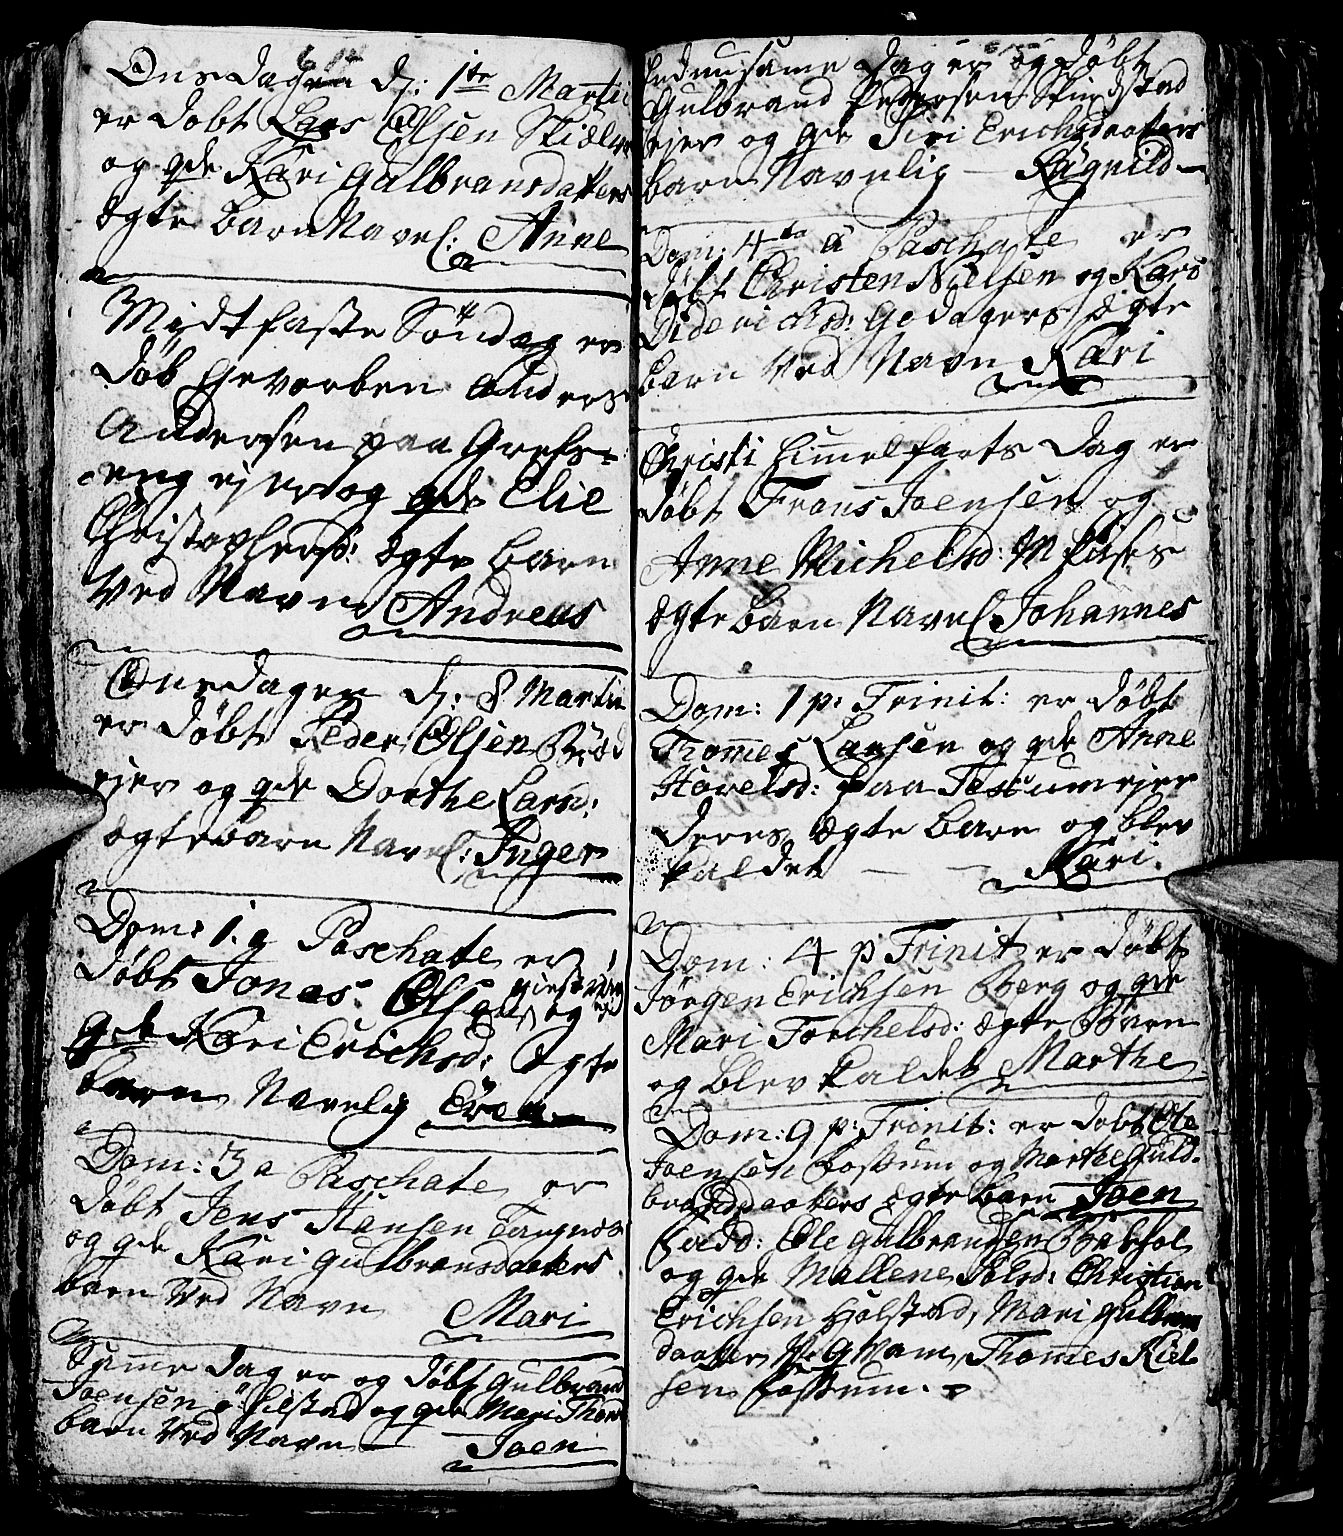 Onsdagen d: 1te Martii
er døbt Lars Olsen
og qde Kari Gulbransdatters
ægte barn Navnl: Anne
Midtfaste Søndag er
døb Anders
Andersen paa Grefs-
eng ejer og qde Elie
Christophersd: ægte barn
Ved Navn Andreas
Onsdagen d: 8 Martii
er døbt Peder Olsen
ejer og qde Dorthe Larsd:
ægte barn Navnl: Inger
Dom: 1. a Paschate er
døbt Jonas Olsen og
qde Kari Erichsd: ægte
barn Navnlig
Dom: 3 a Paschate er
døbt Jens Hansen
og qde Kari Gulbransdaatters
barn Ved Navn Mari
Samme dag er og døbt Gulbrand
Joensen og qde Mari
barn Ved Navn Joen
samme dag er og døbt
Gulbrand Pedersen
ejer og qde Siri Erichsdaatters
barn Navnlig — Ragnild —
Dom: 4ta a Paschate er
døbt Christen Nielsen og Kari
Diderichsd: ægte
barn Ved Navn Kari
Christi Himmelfarts dag er
døbt Frans Joensen og
Anne Michelsd:
ægte barn Navnl: Johannes
Dom: 1 p: Trinit: er døbt
Thomes Larsen og qde Anne
Havelsd: paa
deres ægte barn og blev
kaldet — — Kari.
Dom: 4 p Trinit er døbt
Jørgen Erichsen Berg og qde
Mari Torchelsd: ægte børn
og blev kaldet Marthe
Dom: 9 p: Trinit: er døbt Ole
Joensøn Fossum og Marthe Guld-
brandsdaaters ægte barn Joen
fadd: Ole Gulbrandsen
og qde Mallene Christian
Erichsen Hjolstad, Mari Gulbrans
daater, Thomes Niel
sen Fossum.